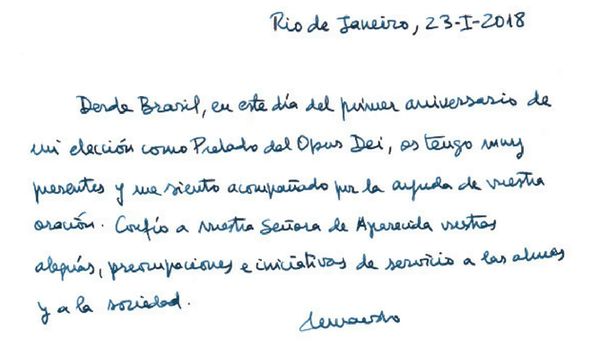 Rio de Janeiro, 23-I-2018
Desde Brasil, en este día del primer aniversario de
mi elección como Prelado del Opus Dei, os tengo muy
presentes y me siento acompañado por la ayuda de vuestra
oración. Confío a Nuestra Señora de Aparecida vuestras
alegrías, preocupaciones e iniciativas de servicio a las almas
y a la sociedad.